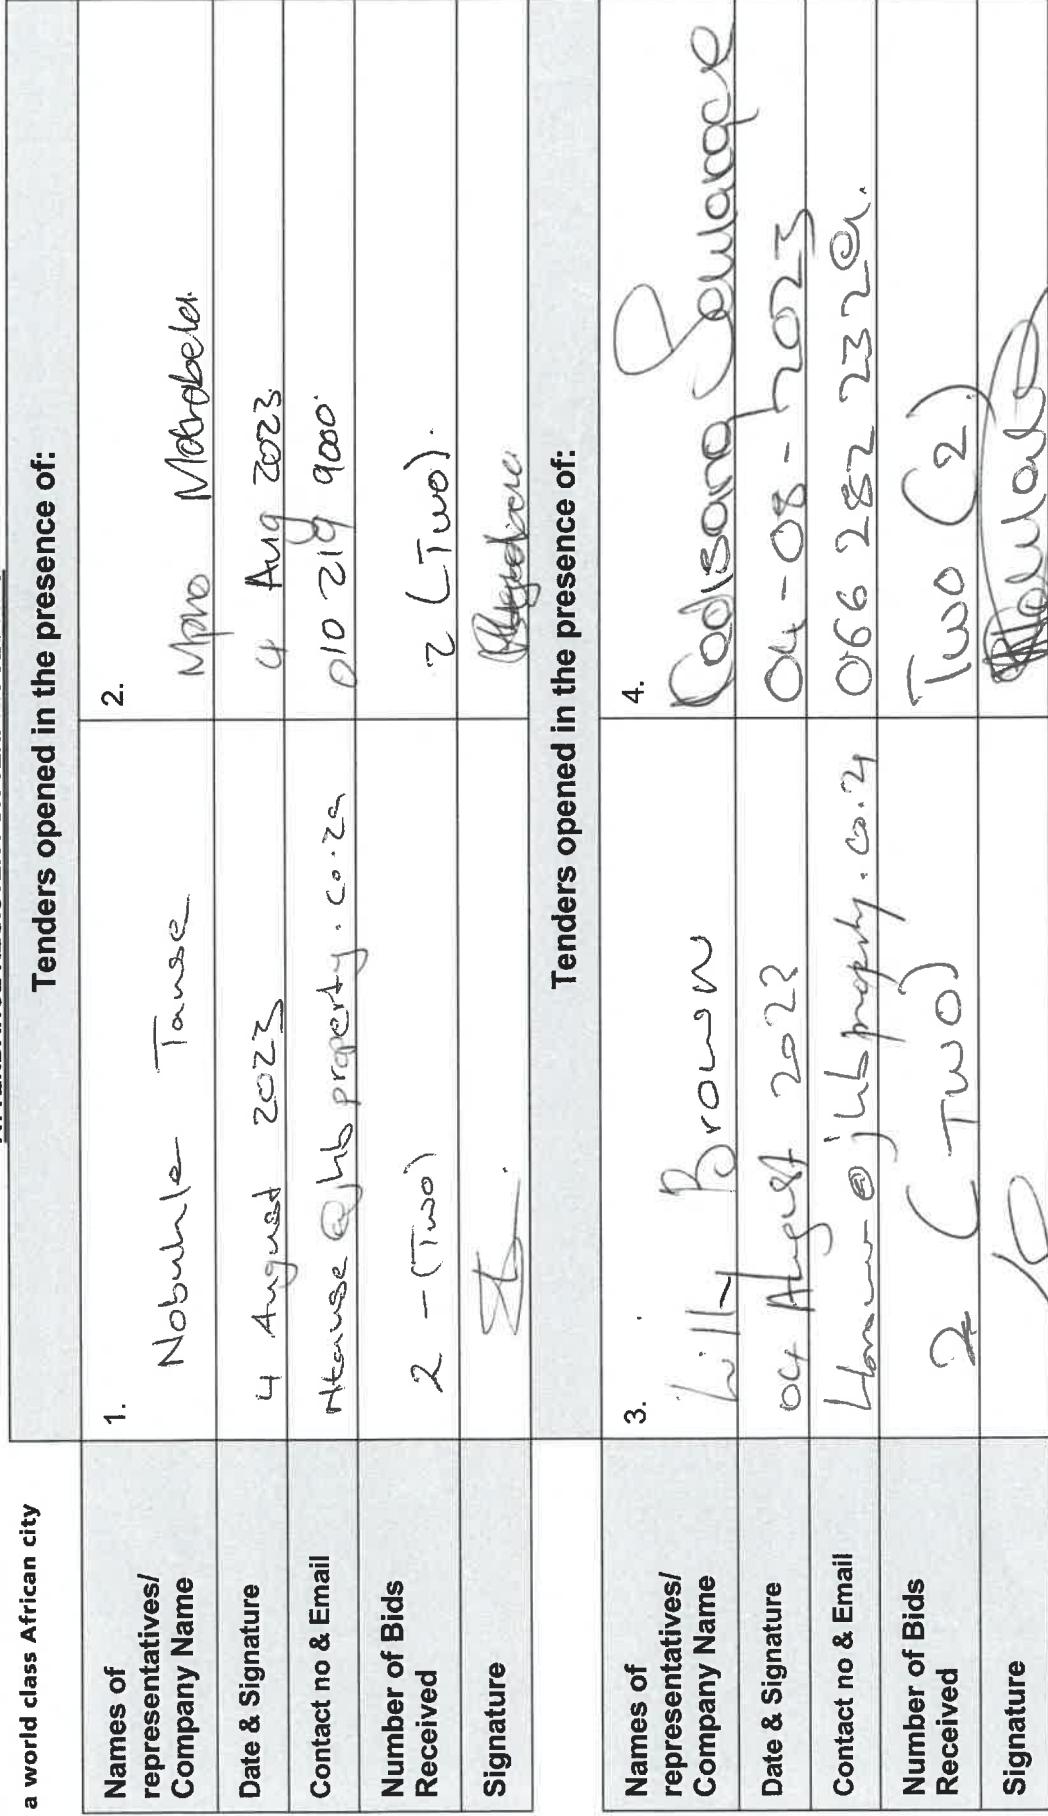 a world class African city
Tenders opened in the presence of:
Names of representatives/ Company Name
1.
Nobuhle Tause
2.
Mpho
Date & Signature
4 August 2023
4 Aug 2023
Contact no & Email
Ntause@jhbproperty.co.za
010 219 9000
Number of Bids Received
2 - (Two)
2 (Two).
Signature
Tenders opened in the presence of:
Names of representatives/ Company Name
3.
Willy Brown
4.
Date & Signature
04 August 2023
04-08-2023
Contact no & Email
@jhbproperty.co.za
066 282 232
Number of Bids Received
2 (TWO)
Two (2)
Signature